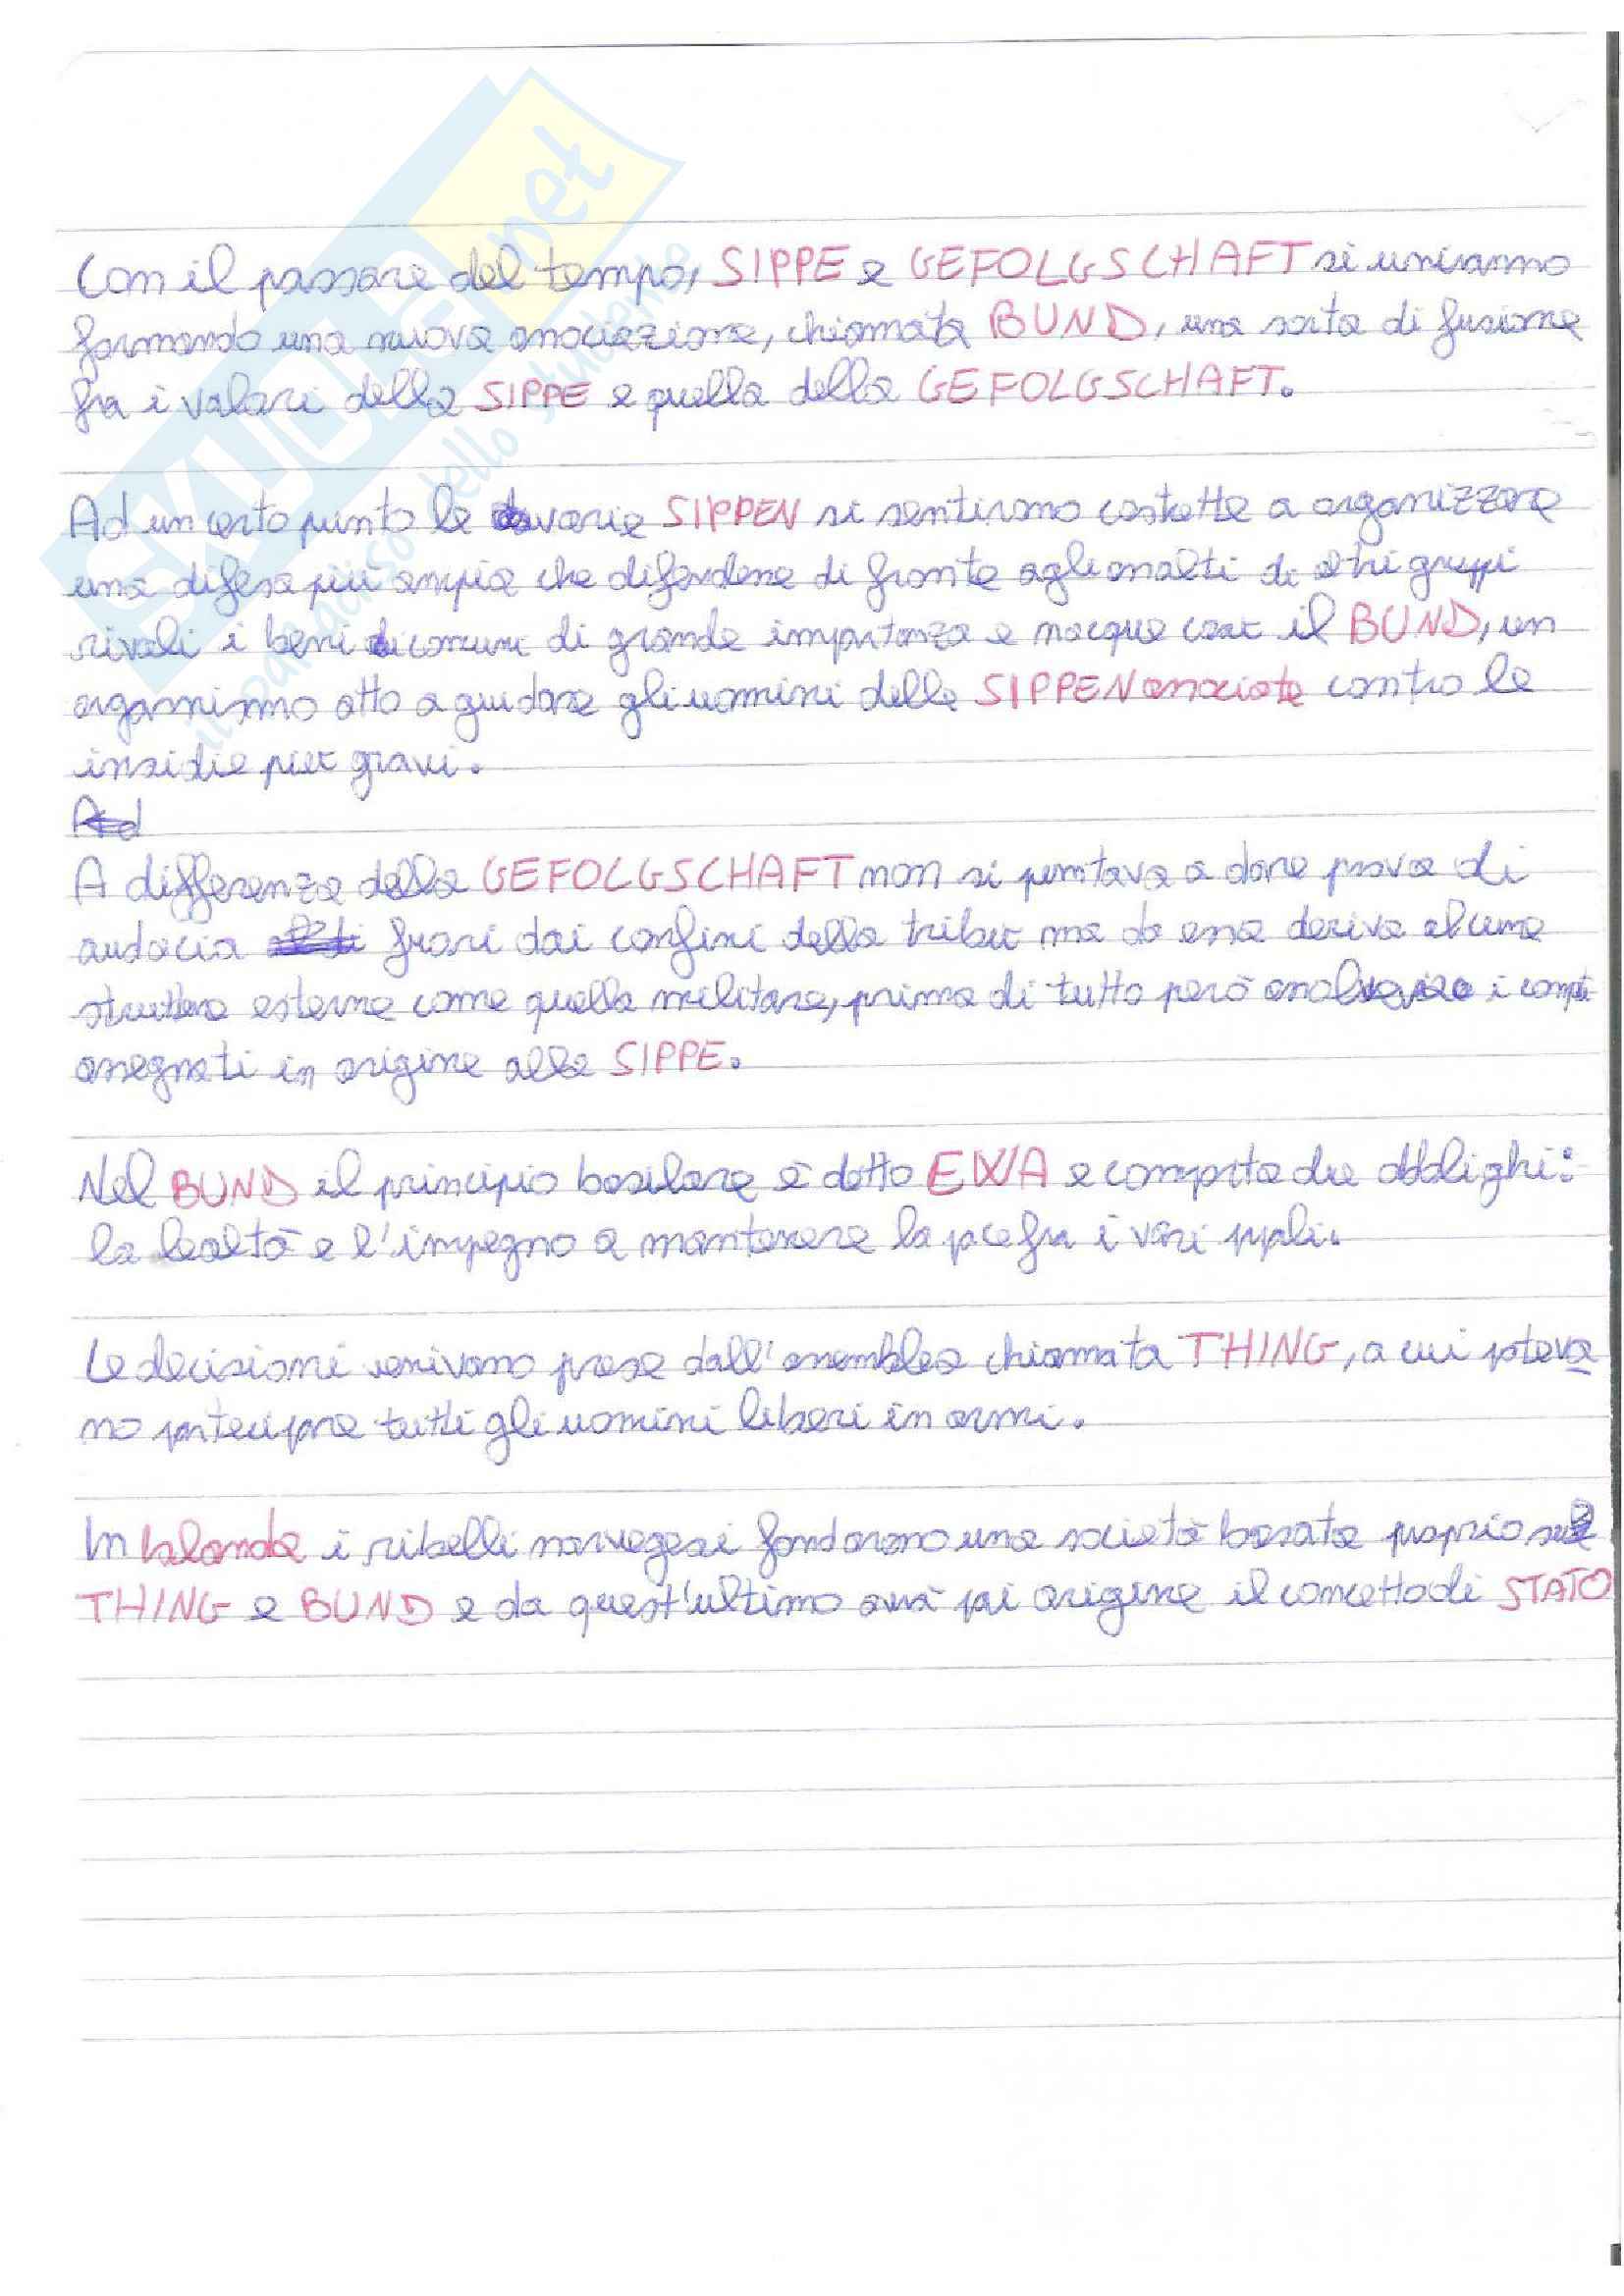 SKUOLA.net
il paradiso dello studente
Con il passare del tempo, SIPPE e GEFOLGSCHAFT si uniranno
formando una nuova associazione, chiamata BUND, una sorta di fusione
fra i valori della SIPPE e quella della GEFOLGSCHAFT.
Ad un certo punto le varie SIPPEN si sentirono costrette a organizzare
una difesa più ampia che difendesse di fronte agli assalti di altri gruppi
rivali i beni comuni di grande importanza e nacque così il BUND, un
organismo atto a guidare gli uomini delle SIPPEN associate contro le
insidie più gravi.
Ad
A differenza della GEFOLGSCHAFT non si puntava a dare prova di
audacia fuori dai confini della tribù ma da essa deriva alcune
strutture esterne come quella militare, prima di tutto però i compiti
assegnati in origine alla SIPPE.
Nel BUND il principio basilare è detto EWA e comporta due obblighi:
la lealtà e l'impegno a mantenere la pace fra i vari popoli.
Le decisioni venivano prese dall'assemblea chiamata THING, a cui poteva
no partecipare tutti gli uomini liberi in armi.
In Islanda i ribelli norvegesi fondarono una società basata proprio su
THING e BUND e da quest'ultimo avrà poi origine il concetto di STATO